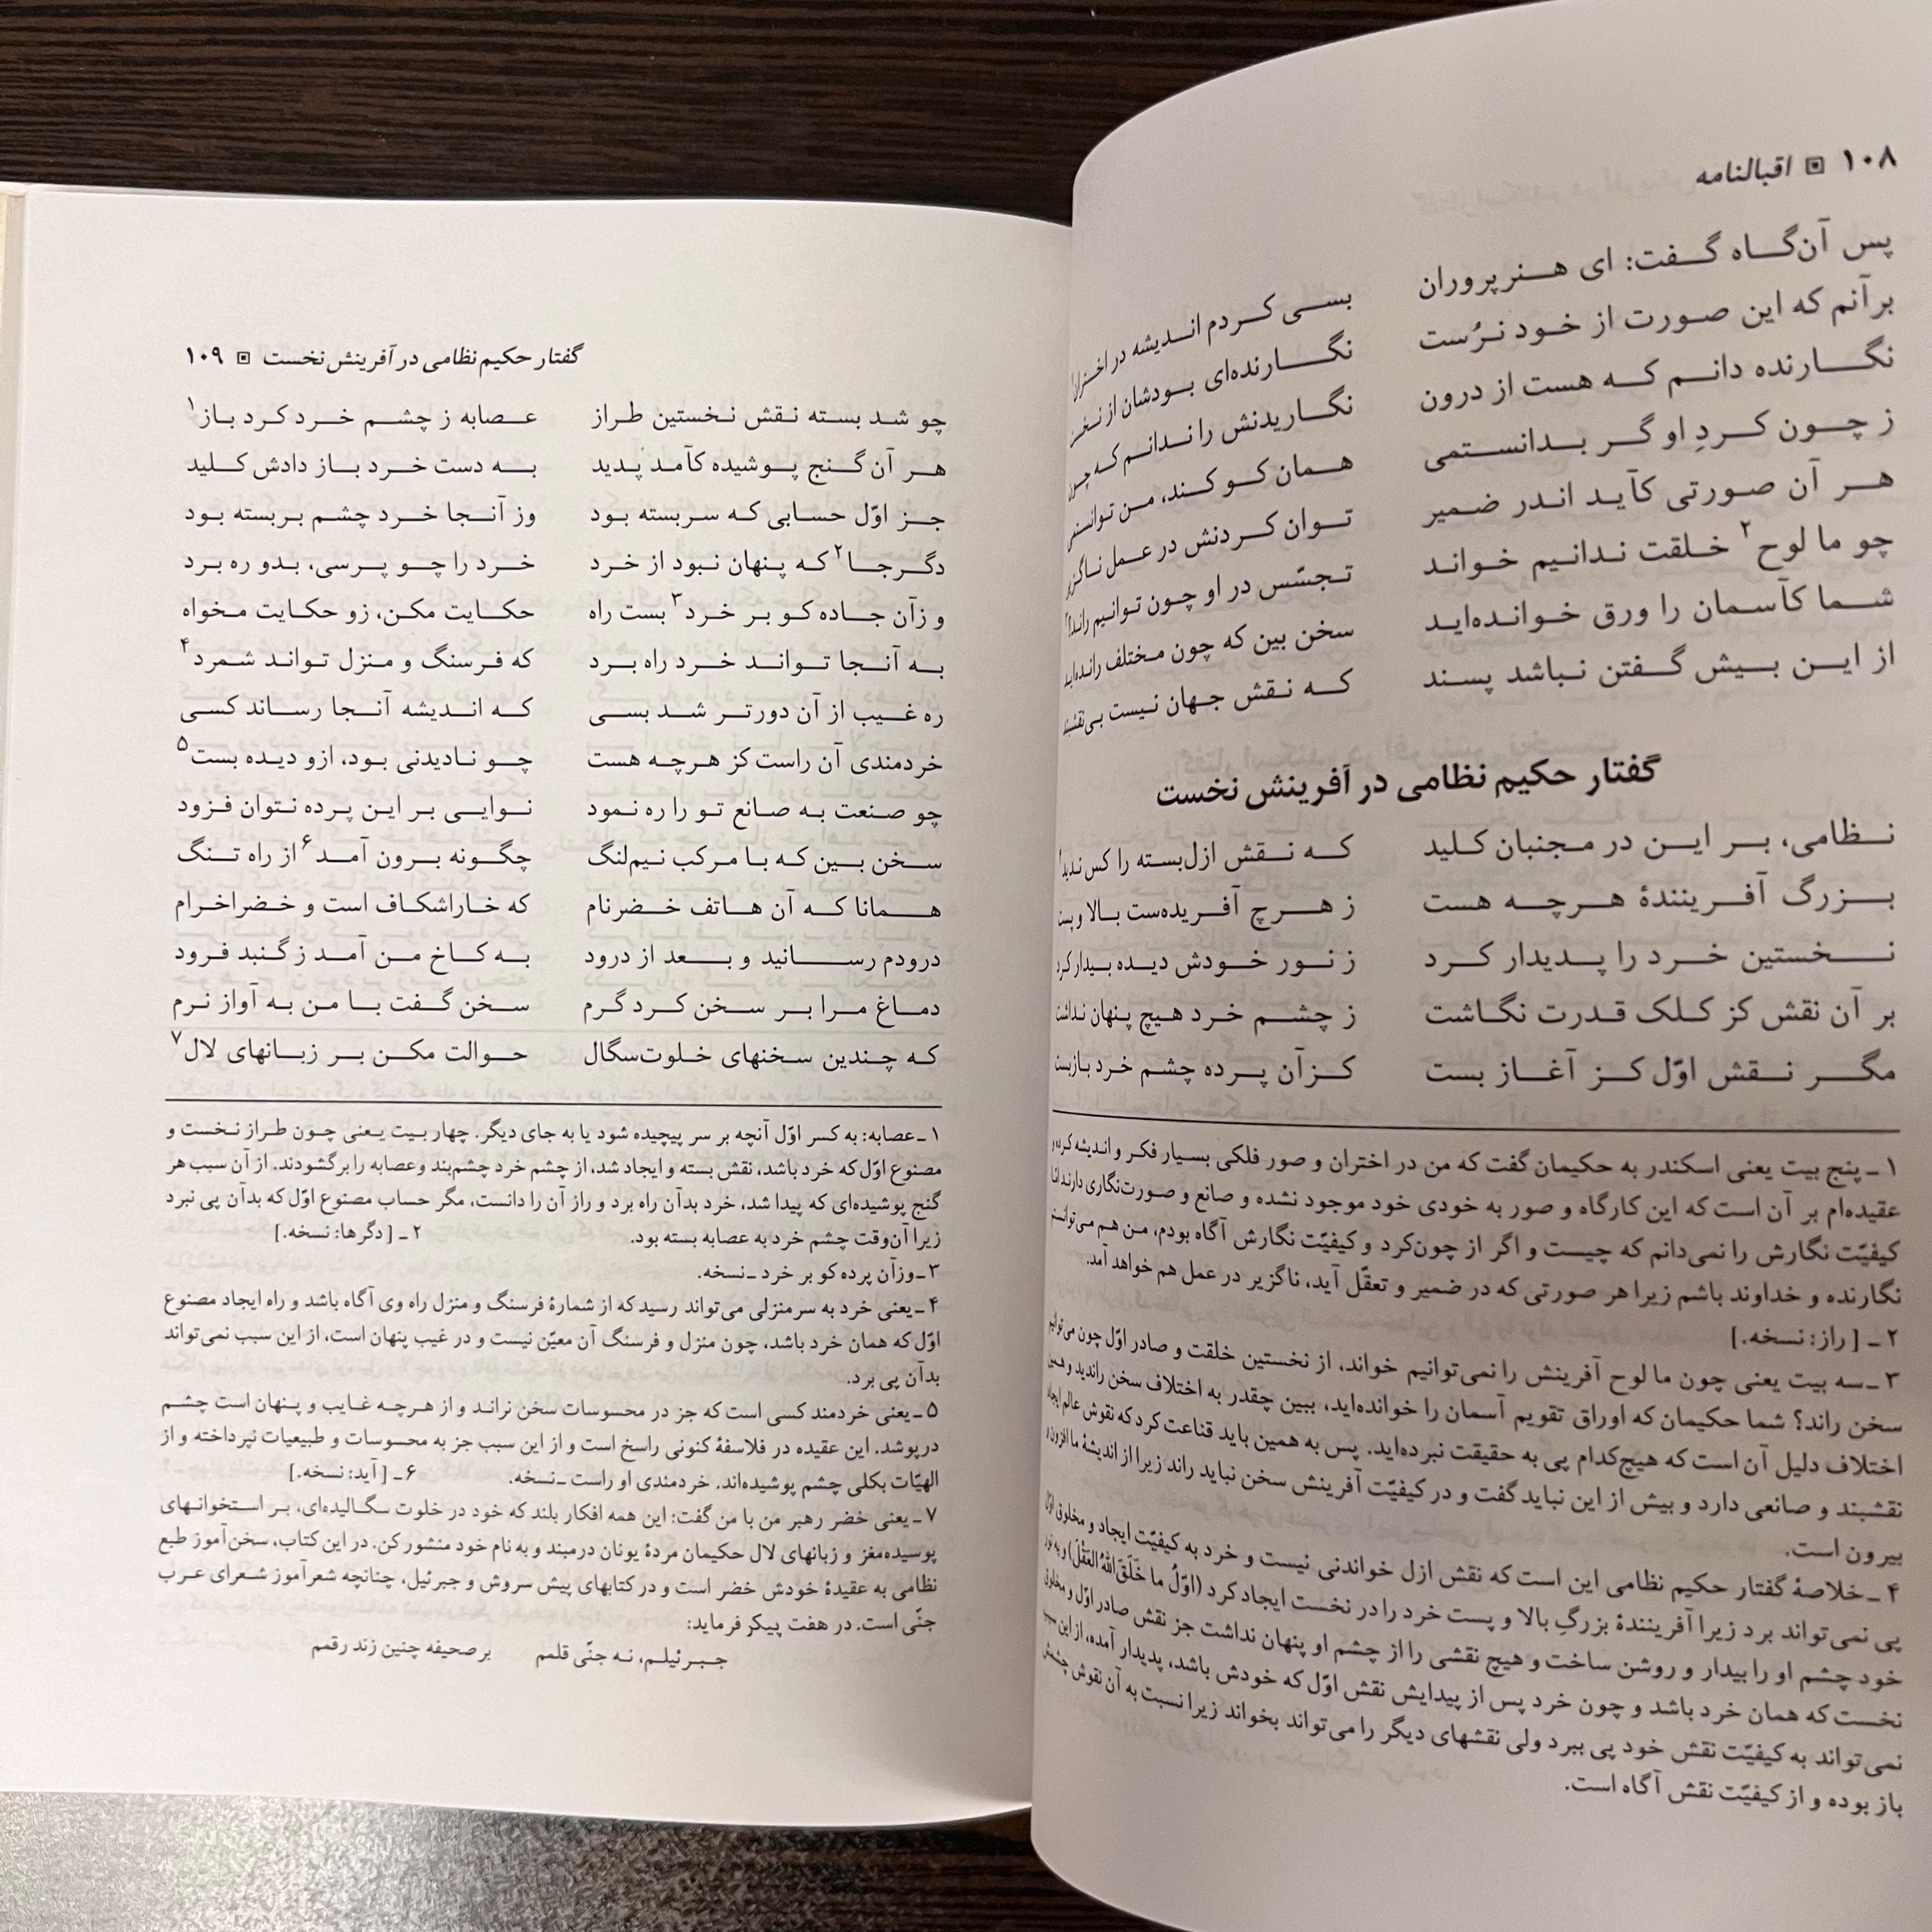 ۱۰۸ ▣ اقبالنامه
پس آن‌گاه گفت: ای هنرپروران بسی کردم اندیشه در اختران
برآنم که این صورت از خود نرُست نگارنده‌ای بودشان از نخست
نگارنده دانم که هست از درون نگاریدنش را ندانم که چون
ز چون کردِ او گر بدانستمی همان کو کند، من توانستمی
هر آن صورتی کآید اندر ضمیر توان کردنش در عمل ناگزیر
چو ما لوح۲ خلقت ندانیم خواند تجسّس در او چون توانیم راند؟
شما کآسمان را ورق خوانده‌اید سخن بین که چون مختلف رانده‌اید
از این بیش گفتن نباشد پسند که نقش جهان نیست بی‌نقشبند
گفتار حکیم نظامی در آفرینش نخست
نظامی، بر این در مجنبان کلید که نقش ازل‌بسته را کس ندید
بزرگ آفرینندهٔ هرچه هست ز هرچ آفریده‌ست بالا و پست
نخستین خرد را پدیدار کرد ز نور خودش دیده بیدار کرد
بر آن نقش کز کلک قدرت نگاشت ز چشم خرد هیچ پنهان نداشت
مگر نقش اوّل کز آغاز بست کزآن پرده چشم خرد بازبست
۱ـ پنج بیت یعنی اسکندر به حکیمان گفت که من در اختران و صور فلکی بسیار فکر و اندیشه کرده و
عقیده‌ام بر آن است که این کارگاه و صور به خودی خود موجود نشده و صانع و صورت‌نگاری دارند امّا
کیفیّت نگارش را نمی‌دانم که چیست و اگر از چون‌کرد و کیفیّت نگارش آگاه بودم، من هم می‌توانستم
نگارنده و خداوند باشم زیرا هر صورتی که در ضمیر و تعقّل آید، ناگزیر در عمل هم خواهد آمد.
۲ـ [راز: نسخه.]
۳ـ سه بیت یعنی چون ما لوح آفرینش را نمی‌توانیم خواند، از نخستین خلقت و صادر اوّل چون می‌توانیم
سخن راند؟ شما حکیمان که اوراق تقویم آسمان را خوانده‌اید، ببین چقدر به اختلاف سخن راندید و همین
اختلاف دلیل آن است که هیچ‌کدام پی به حقیقت نبرده‌اید. پس به همین باید قناعت کرد که نقوش عالم ایجاد
نقشبند و صانعی دارد و بیش از این نباید گفت و در کیفیّت آفرینش سخن نباید راند زیرا از اندیشهٔ ما افزون و
بیرون است.
۴ـ خلاصهٔ گفتار حکیم نظامی این است که نقش ازل خواندنی نیست و خرد به کیفیّت ایجاد و مخلوق اوّل
پی نمی‌تواند برد زیرا آفرینندهٔ بزرگِ بالا و پست خرد را در نخست ایجاد کرد (اوّلُ ما خَلَقَ اللهُ العَقْلَ) و به نور
خود چشم او را بیدار و روشن ساخت و هیچ نقشی را از چشم او پنهان نداشت جز نقش صادر اوّل و مخلوق
نخست که همان خرد باشد و چون خرد پس از پیدایش نقش اوّل که خودش باشد، پدیدار آمده، از این سبب
نمی‌تواند به کیفیّت نقش خود پی ببرد ولی نقشهای دیگر را می‌تواند بخواند زیرا نسبت به آن نقوش چشمش
باز بوده و از کیفیّت نقش آگاه است.
گفتار حکیم نظامی در آفرینش نخست ▣ ۱۰۹
چو شد بسته نقش نخستین طراز عصابه ز چشم خرد کرد باز۱
هر آن گنج پوشیده کآمد پدید به دست خرد باز دادش کلید
جز اوّل حسابی که سربسته بود وز آنجا خرد چشم بربسته بود
دگرجا۲ که پنهان نبود از خرد خرد را چو پرسی، بدو ره برد
و زآن جاده کو بر خرد۳ بست راه حکایت مکن، زو حکایت مخواه
به آنجا تواند خرد راه برد که فرسنگ و منزل تواند شمرد۴
ره غیب از آن دورتر شد بسی که اندیشه آنجا رساند کسی
خردمندی آن راست کز هرچه هست چو نادیدنی بود، ازو دیده بست۵
چو صنعت به صانع تو را ره نمود نوایی بر این پرده نتوان فزود
سخن بین که با مرکب نیم‌لنگ چگونه برون آمد۶ از راه تنگ
همانا که آن هاتف خضرنام که خاراشکاف است و خضراخرام
درودم رسانید و بعد از درود به کاخ من آمد ز گنبد فرود
دماغ مرا بر سخن کرد گرم سخن گفت با من به آواز نرم
که چندین سخنهای خلوت‌سگال حوالت مکن بر زبانهای لال۷
۱ـ عصابه: به کسر اوّل آنچه بر سر پیچیده شود یا به جای دیگر. چهار بیت یعنی چون طراز نخست و
مصنوع اوّل که خرد باشد، نقش بسته و ایجاد شد، از چشم خرد چشم‌بند و عصابه را برگشودند. از آن سبب هر
گنج پوشیده‌ای که پیدا شد، خرد بدآن راه برد و راز آن را دانست، مگر حساب مصنوع اوّل که بدآن پی نبرد
زیرا آن‌وقت چشم خرد به عصابه بسته بود. ۲ـ [دگرها: نسخه.]
۳ـ وزآن پرده کو بر خرد ـ نسخه.
۴ـ یعنی خرد به سرمنزلی می‌تواند رسید که از شمارهٔ فرسنگ و منزل راه وی آگاه باشد و راه ایجاد مصنوع
اوّل که همان خرد باشد، چون منزل و فرسنگ آن معیّن نیست و در غیب پنهان است، از این سبب نمی‌تواند
بدآن پی برد.
۵ـ یعنی خردمند کسی است که جز در محسوسات سخن نراند و از هرچه غایب و پنهان است چشم
درپوشد. این عقیده در فلاسفهٔ کنونی راسخ است و از این سبب جز به محسوسات و طبیعیات نپرداخته و از
الهیّات بکلی چشم پوشیده‌اند. خردمندی او راست ـ نسخه. ۶ـ [آید: نسخه.]
۷ـ یعنی خضر رهبر من با من گفت: این همه افکار بلند که خود در خلوت سگالیده‌ای، بر استخوانهای
پوسیده‌مغز و زبانهای لال حکیمان مردهٔ یونان درمبند و به نام خود منشور کن. در این کتاب، سخن‌آموز طبع
نظامی به عقیدهٔ خودش خضر است و در کتابهای پیش سروش و جبرئیل، چنانچه شعرآموز شعرای عرب
جنّی است. در هفت پیکر فرماید:
جبرئیلم، نه جنّی قلمم بر صحیفه چنین زند رقمم